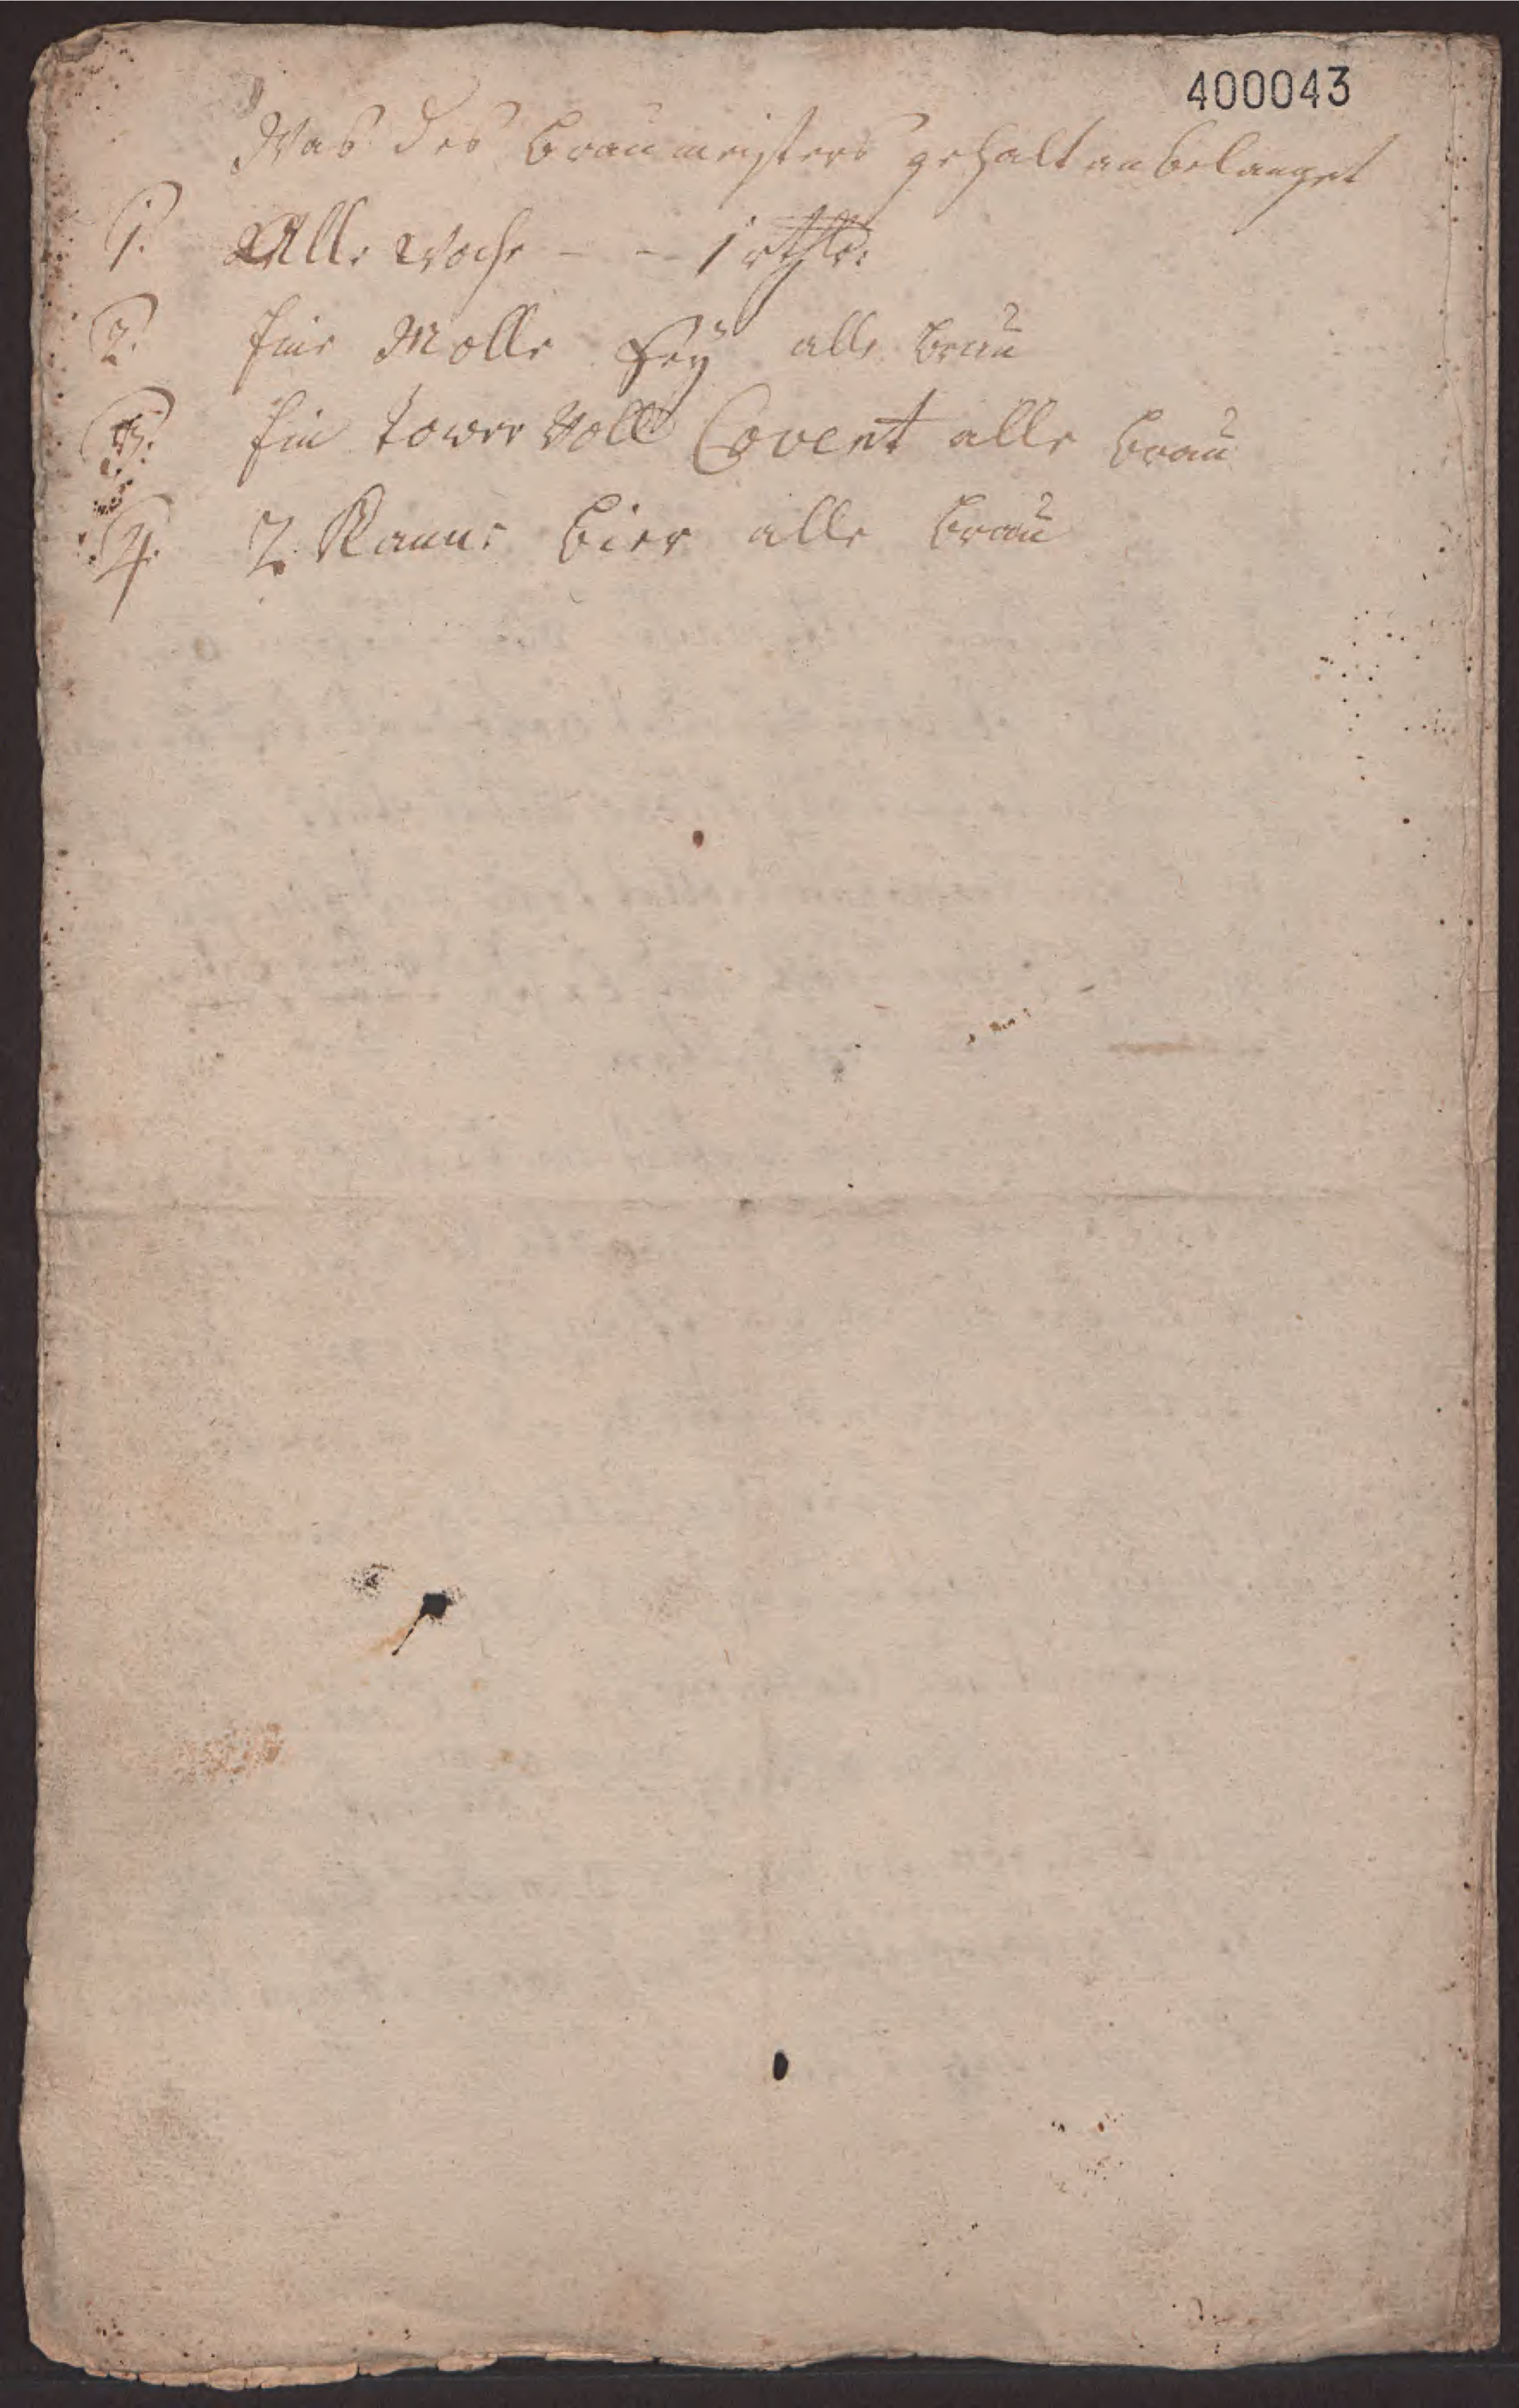 400043
Was des braumeisters gehalt anbelanget
1. Alle woche - - 1 rthlr:
2. Eine Molle Hey alle brau
3. Ein tower voll Covent alle brau
4. 2 Kanne bier alle brau